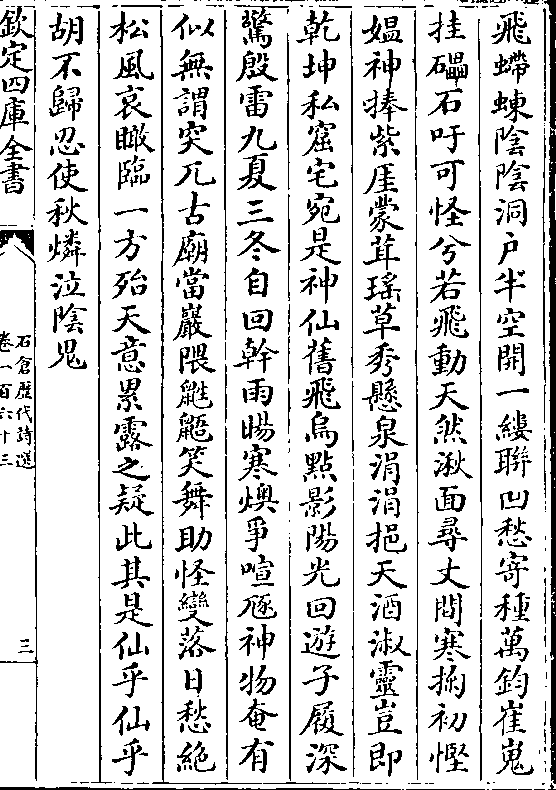 飛蠕蝀陰陰洞户半空開一縷聯凹愁寄種萬鈞崔嵬
挂礧石吁可怪兮若飛動天然湫面尋丈間寒掬初慳
媪神捧紫厓蒙茸瑤草秀懸泉涓涓挹天酒淑靈豈即
乾坤私窟宅宛是神仙舊飛烏點影陽光回遊子屐深
驚殷雷九夏三冬自回斡雨暘寒燠爭喧豗神物奄有
似無謂突兀古廟當巖隈鼪鼯笑舞助怪變落日愁絕
松風哀瞰臨一方殆天意累露之疑此其是仙乎仙乎
胡不歸忍使秋燐泣陰鬼
欽定四庫全書
石倉歷代詩選
卷一百六十三
三